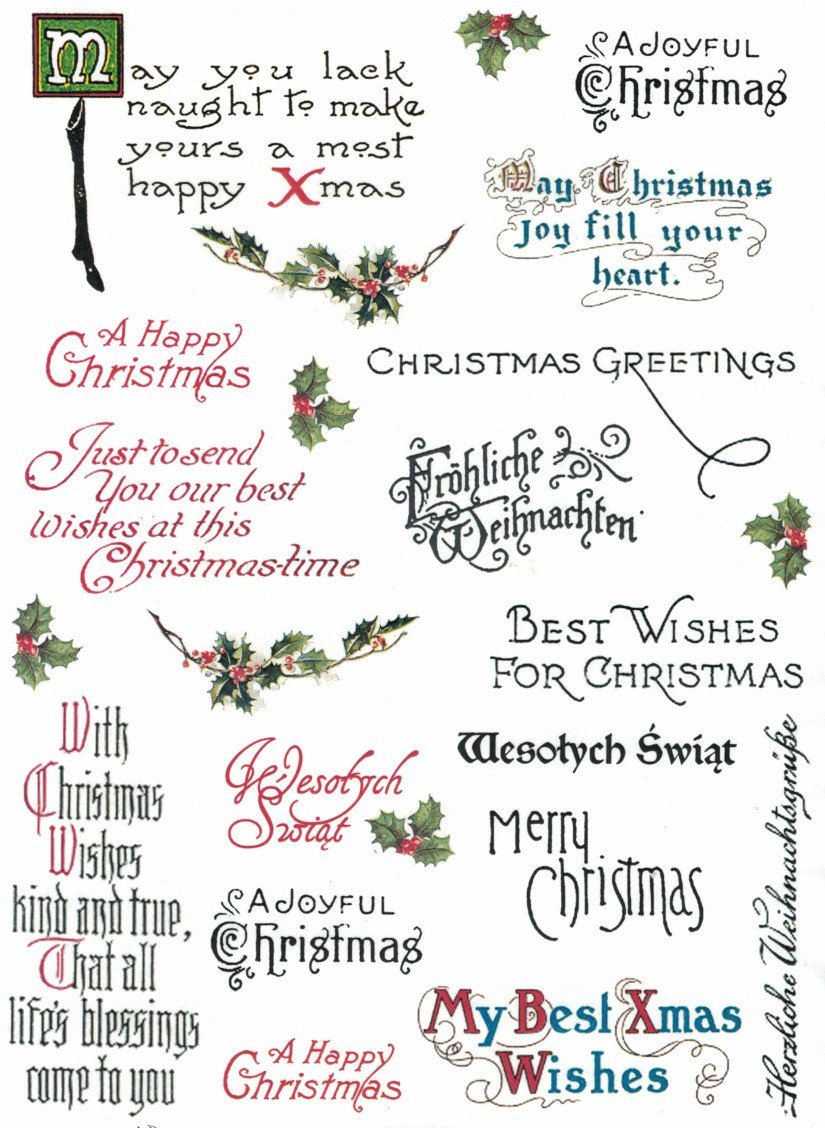 May you lack
naught to make
yours a most
happy Xmas
A Joyful
Christmas
May Christmas
Joy fill your
heart.
A Happy
Christmas
Christmas Greetings
Just to send
You our best
Wishes at this
Christmas-time
Fröhliche
Weihnachten
Best Wishes
For Christmas
With
Christmas
Wishes
kind and true,
That all
life's blessings
come to you
Wesołych
Świąt
Wesołych Świąt
Merry
Christmas
Herzliche Weihnachtsgrüße
A Joyful
Christmas
A Happy
Christmas
My Best Xmas
Wishes